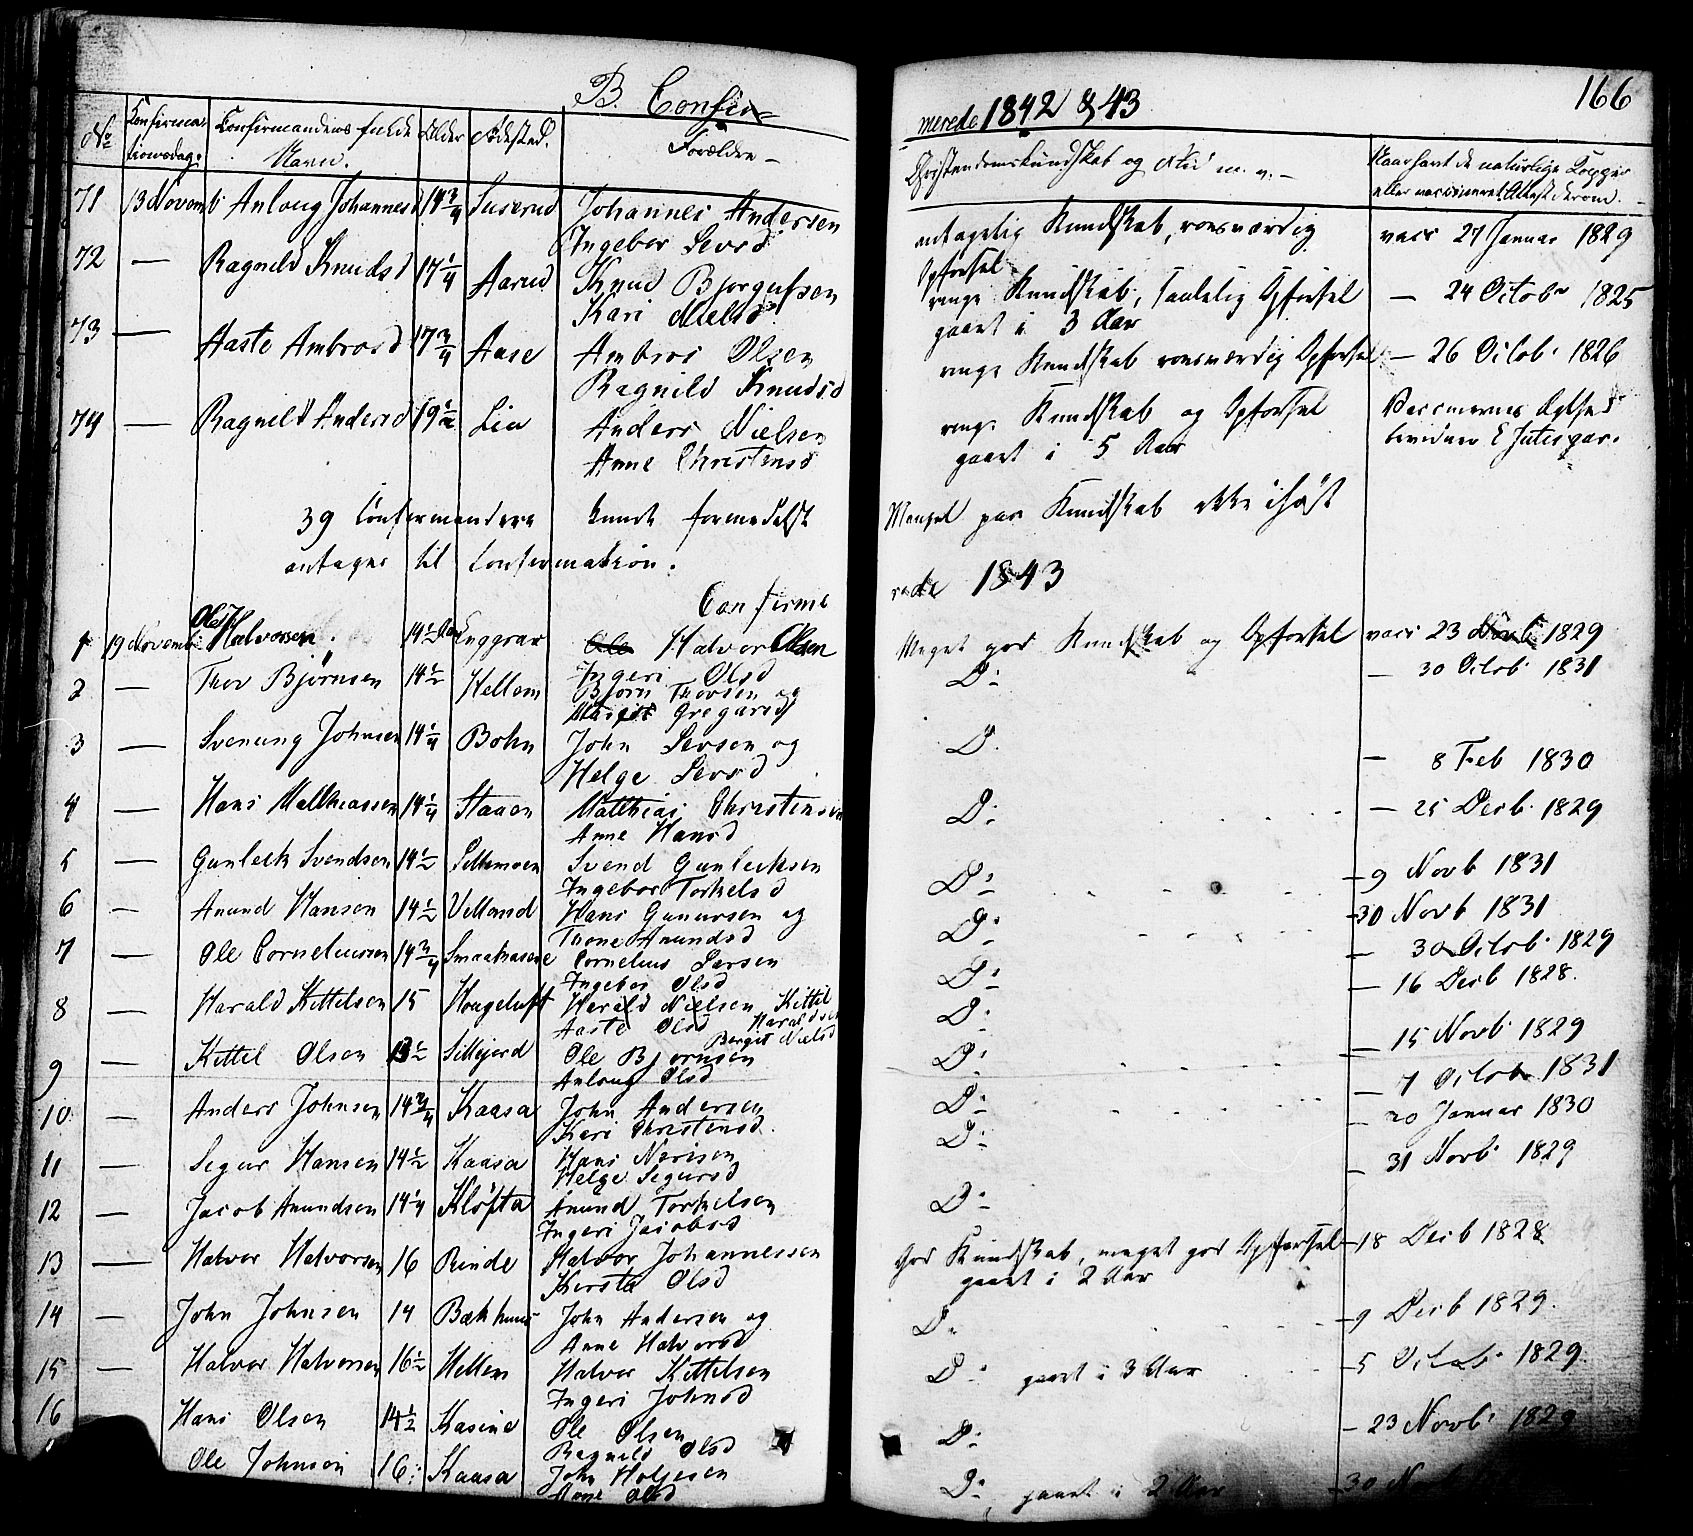 B. Confir-
merede 1842 & 43
166
No
Confirma-
tionsdag.
Confirmandens fulde
Navn.
Alder
Opholdssted.
Forældre
Christendomskundskab og Flid m. v.
Naar havt de naturlige Kopper
eller vaccineret, Attest derom.
71 13 Novemb Anlaug Johannesd 14 3/4 Suserud Johannes Andersen
Ingebor Sevsd
antagelig Kundskab, roesværdig
Opførsel
vacc 27 Januar 1829
72 — Ragnild Knudsd 17 1/4 Aarud Knud Bjorgufsen
Kari Nielsd
ringe Kundskab, taalelig Opførsel
gaaet i 3 Aar
— 24 Octobr 1825
73 — Aaste Ambrosd 17 3/4 Aase Ambros Olsen
Ragnild Knudsd
ringe Kundskab roesværdig Opførsel
— 26 Octob. 1826
74 — Ragnild Andersd 19 1/2 Lia Anders Nielsen
Anne Christensd
ringe Kundskab og Opførsel
gaaet i 5 Aar
39 Confirmandere kunde formedelst
Mangel paa Kundskab ikke
antages til Confirmation.
Confirme
rede 1843
1 19 Novemb Ole Halvorsen 14 1/2 Enggrav Ole Halvor Olsen
Ingeri Olsd
Meget god Kundskab og Opførsel
vacc 23 Novb 1829
2 — Thor Bjørnsen 14 1/2 Hellom Bjørn Thorsen og
Margit Gregarsd
D: — 30 Octob. 1831
3 — Svenung Johnsen 14 1/4 Bohn John Sevsen og
Helge Sevsd
D. — 8 Feb 1830
4 — Hans Matthiassen 14 1/4 Staaen Matthias Christensen
Anne Hansd
D: — 25 Decb. 1829
5 — Gunleik Svendsen 14 1/2 Svend Gunleiksen
Ingebor Torkelsd
D: — 9 Novb 1831
6 — Anund Hansen 14 1/2 Vetland Hans Gunursen og
Thone Anundsd
D: — 30 Novb 1831
7 — Ole Corneliussen 14 3/4 Cornelius Larsen
Ingebor Olsd
D: — 30 Octob. 1829
8 — Harald Kittelsen 15 Haugeluft Harald Nielsen Kittil
Haraldsen
Aaste Olsd
Bergit Nielsd
D: — 16 Decb 1828.
9 Kittel Olsen Sillejord Ole Bjørnsen
Anlaug Olsd
D: — 15 Novb. 1829
10 — Anders Johnsen 14 3/4 Kaasa John Andersen
Kari Christensd.
D: — 7 Octob. 1831
11 — Segur Hansen 14 1/2 Kaasa Hans Nerisen
Helge Segursd
D: — 20 Januar 1830
12 — Jacob Anundsen 14 1/4 Kløfta Anund Torkelsen
Ingeri Jacobsd
D: — 31 Novb. 1829
13 — Halvor Halvorsen 16 Rinde Halvor Johannessen
Kersta Olsd
God Kundskab, meget god Opførsel
gaaet i 2 Aar
— 18 Decb 1828
14 — John Johnsen 14 Bækhuus John Andersen og
Anne Halvorsd
D. — 9 Decb 1829.
15 — Halvor Halvorsen 16 1/2 Hellem Halvor Kittelsen
Ingeri Johnsd
D: gaaet i 3 Aar — 5 Octob. 1829
16 Hans Olsen 14 1/2 Kasine Ole Olsen
Ragnild Olsd
D: — 23 Novb. 1829
Ole Johnson 16 Kaasa John Holjesen
Anne Olsd
D: gaaet i 2 Aar — 30 Novb